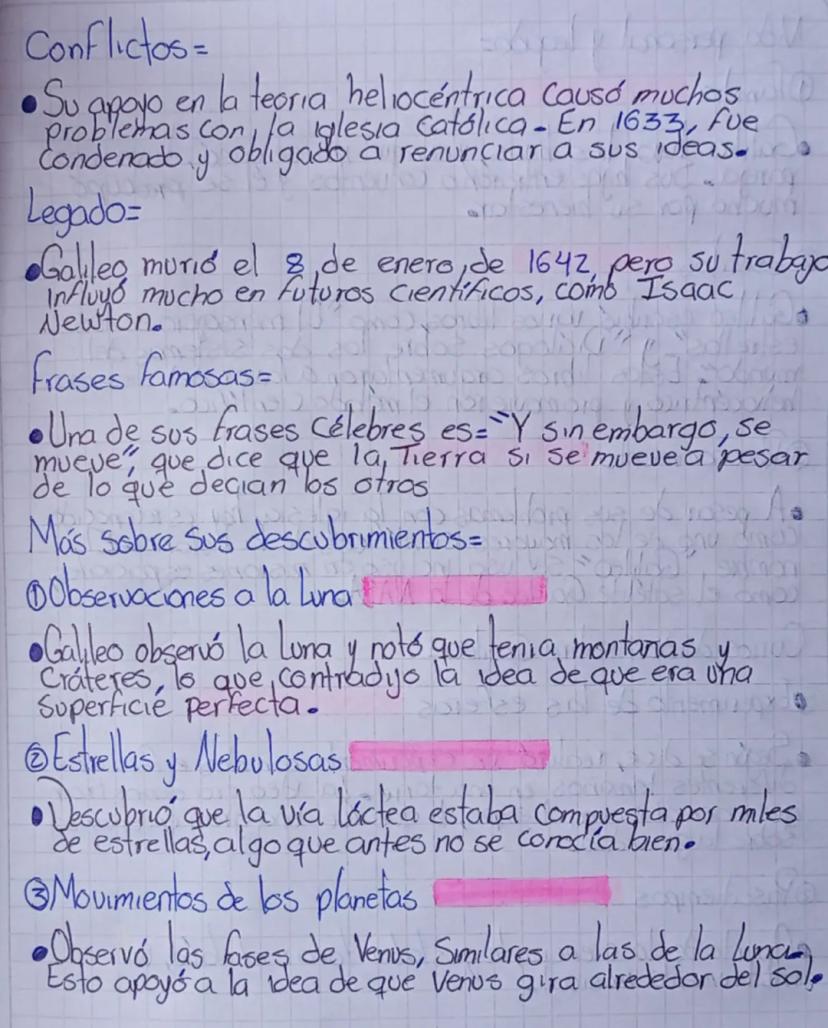 Conflictos=
• Su apoyo en la teoria heliocéntrica causó muchos
problemas con la iglesia católica. En 1633, fue
condenado y obligado a renunciar a sus ideas.
Legado=
• Galileo murió el 8 de enero de 1642, pero su trabajo
influyó mucho en futuros científicos, como Isaac
Newton.
frases famosas=
• Una de sus frases célebres es= "Y sin embargo, se
mueve", que dice que la Tierra si se mueve a pesar
de lo que decian los otros
Más sobre sus descubrimientos=
① Observaciones a la luna
• Galileo observó la luna y notó que tenia montanas y
cráteres, lo que contradijo la idea de que era una
superficie perfecta.
② Estrellas y Nebulosas
• Descubrió que la vía láctea estaba compuesta por miles
de estrellas, algo que antes no se conocía bien.
③ Movimientos de los planetas
• Observó las fases de Venus, similares a las de la luna.
Esto apoyó a la idea de que Venus gira alrededor del sol.